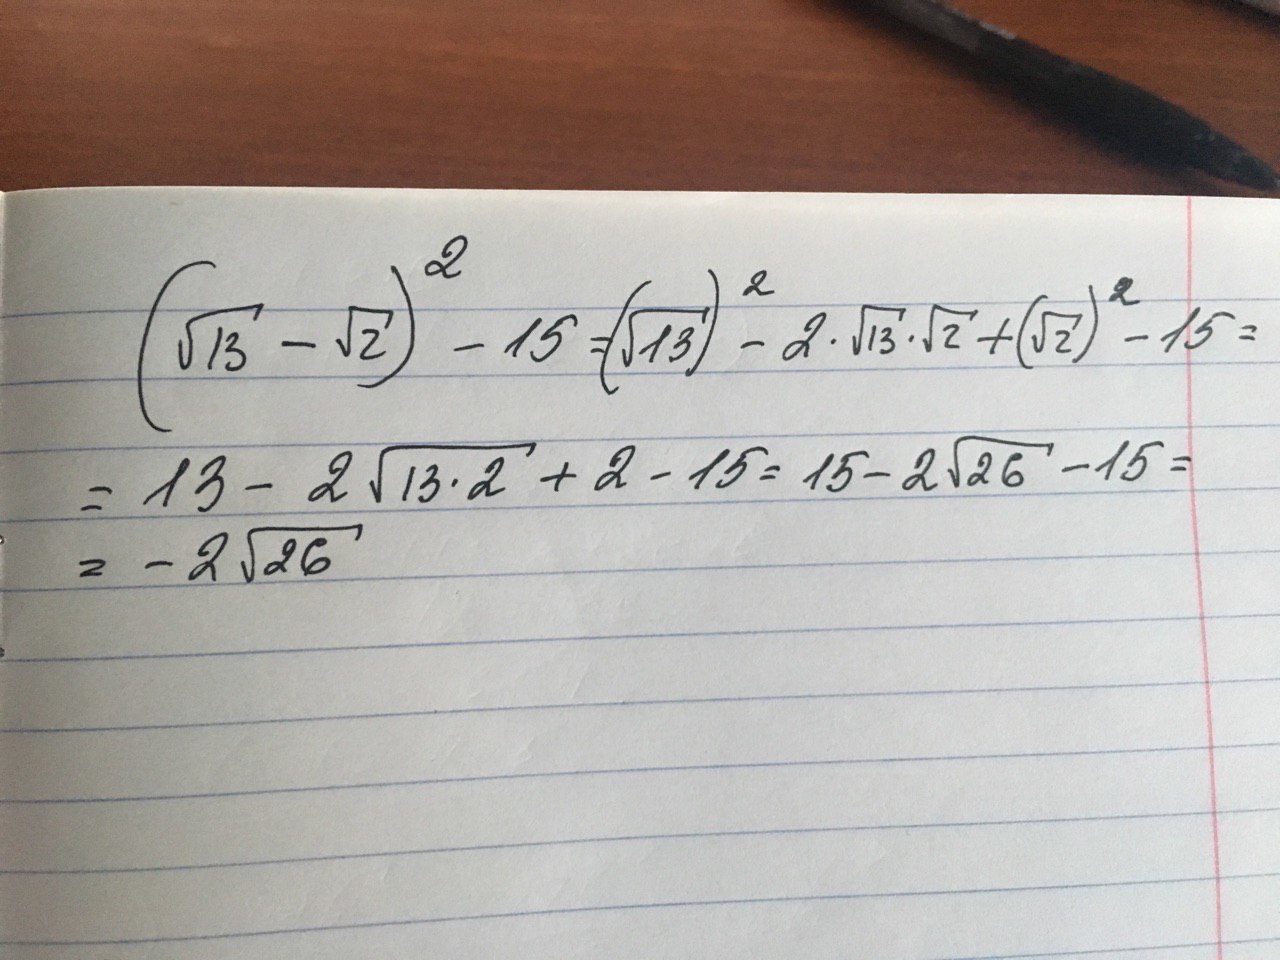 (√13 − √2)² − 15 = (√13)² − 2·√13·√2 + (√2)² − 15 =
= 13 − 2√13·2 + 2 − 15 = 15 − 2√26 − 15 =
= − 2√26